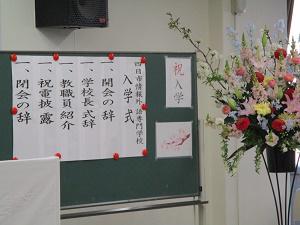 四日市情報外語専門学校
入学式
一、開会の辞
一、学校長式辞
一、教職員紹介
一、祝電披露
一、閉会の辞
祝入学